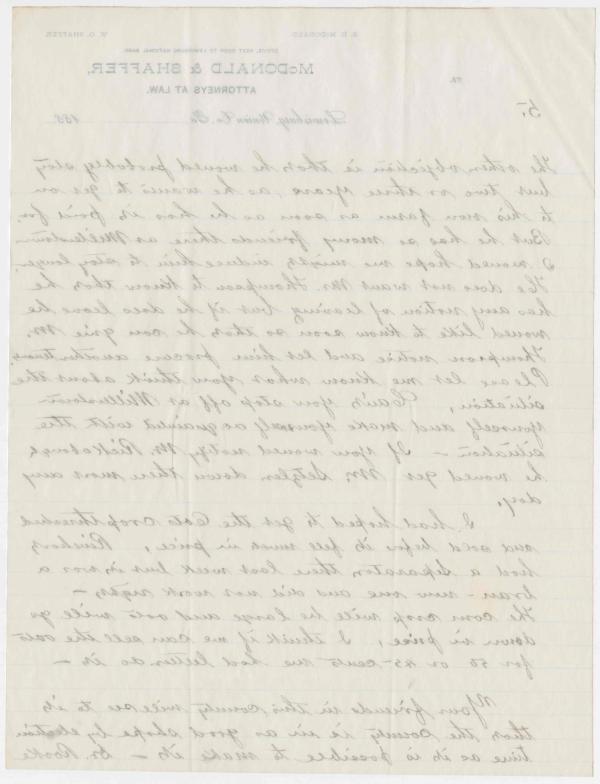 J. D. McDONALD. W. O. SHAFFER.
OFFICE, NEXT DOOR TO LEWISBURG NATIONAL BANK.
McDONALD & SHAFFER,
ATTORNEYS AT LAW.
Lewisburg, Union Co. Pa. 188
5.
The other objection is that he would probably stay
but two or three years, as he wants to go on
to his own farm as soon as he has it paid for.
But he has so many friends there at Millestown
I would hope we might induce him to stay longer.
He does not want Mr. Thompson to know that he
has any notion of leaving but if he does leave he
would like to know soon so that he can give Mr.
Thompson notice and let him procure another tenant.
Please let me know what you think about the
situation, Can't you stop off at Millestown
yourself and make yourself acquainted with the
situation — If you would notify Mr. Rickabaugh
he would get Mr. Setzler down there most any
day.
I had hoped to get the Oats crop threshed
and sold before it fell much in price,
had a separator there last week but it was a
bran-new one and did not work right —
The corn crop will be large and oats will go
down in price, I think if we can sell the oats
for 50 or 45 cents we had better do it —
Your friends in this county will see to it
that the county is in as good shape by election
time as it is possible to make it — Dr. Rooke